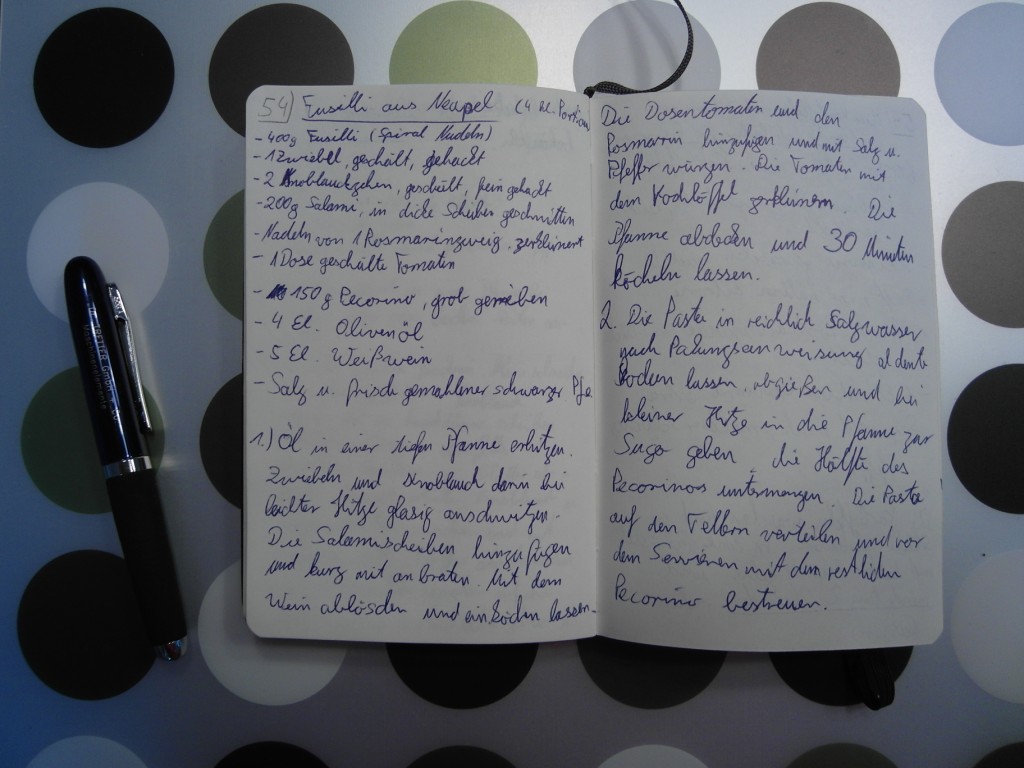 54) Fusilli aus Neapel (4 kl. Portion
- 400g Fusilli (Spiral Nudeln)
- 1 Zwiebel, geschält, gehackt
- 2 Knoblauchzehen, geschält, fein gehackt
- 200g Salami, in dicke Scheiben geschnitten
- Nadeln von 1 Rosmarinzweig, zerkleinert
- 1 Dose geschälte Tomaten
- 150 g Pecorino, grob gerieben
- 4 El. Olivenöl
- 5 El. Weißwein
- Salz u. frisch gemahlener schwarzer Pfe
1.) Öl in einer tiefen Pfanne erhitzen.
Zwiebeln und Knoblauch darin bei
leichter Hitze glasig anschwitzen.
Die Salamischeiben hinzufügen
und kurz mit anbraten. Mit dem
Wein ablösden und einkochen lassen.
Die Dosentomaten und den
Rosmarin hinzufügen und mit Salz u.
Pfeffer würzen. Die Tomaten mit
dem Kochlöffel zerkleinern. Die
Pfanne abdecken und 30 Minuten
köcheln lassen.
2. Die Pasta in reichlich Salzwasser
nach Packungsanweisung al dente
kochen lassen, abgießen und bei
kleiner Hitze in die Pfanne zur
Sugo geben, die Hälfte des
Pecorinos untermengen. Die Pasta
auf den Tellern verteilen und vor
dem Servieren mit dem restlichen
Pecorino bestreuen.